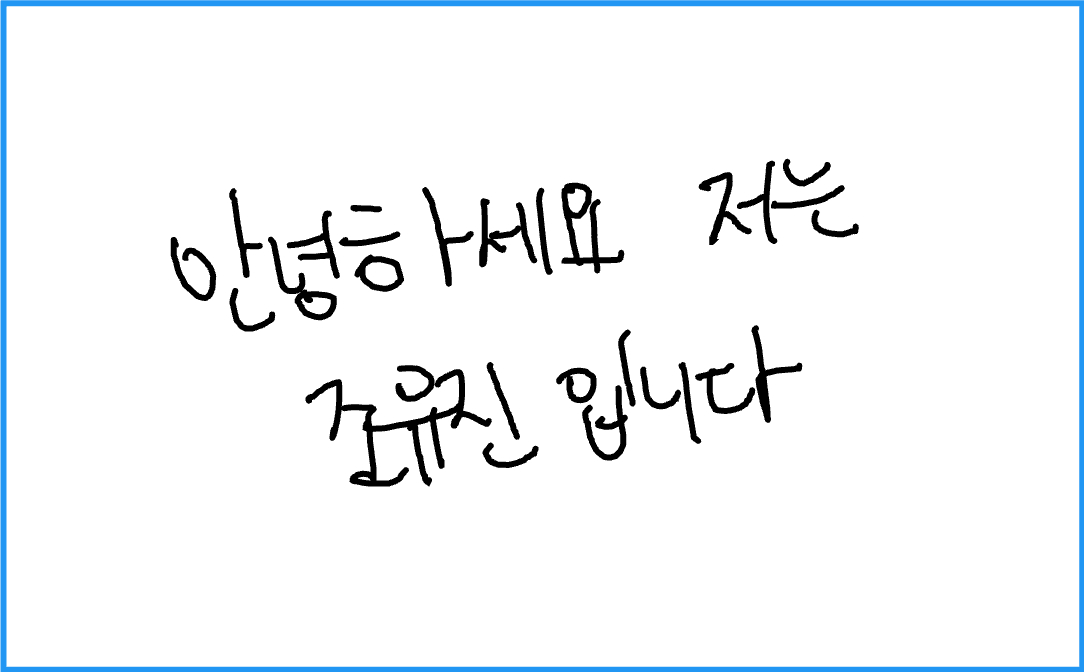 안녕하세요 저는
조유진 입니다